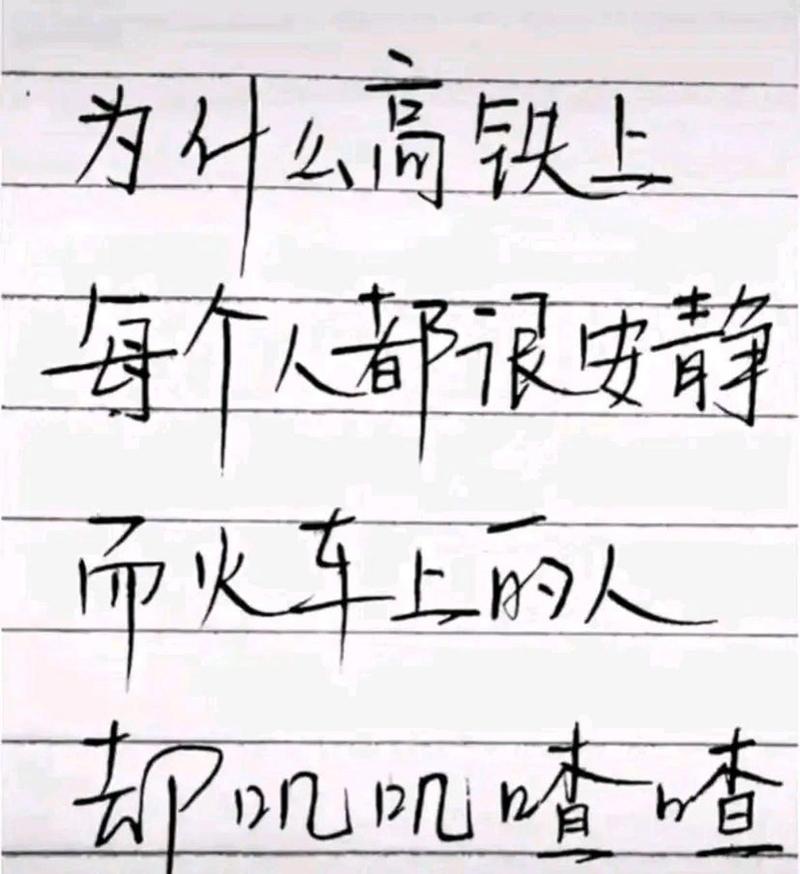 为什么高铁上
每个人都很安静
而火车上的人
却叽叽喳喳